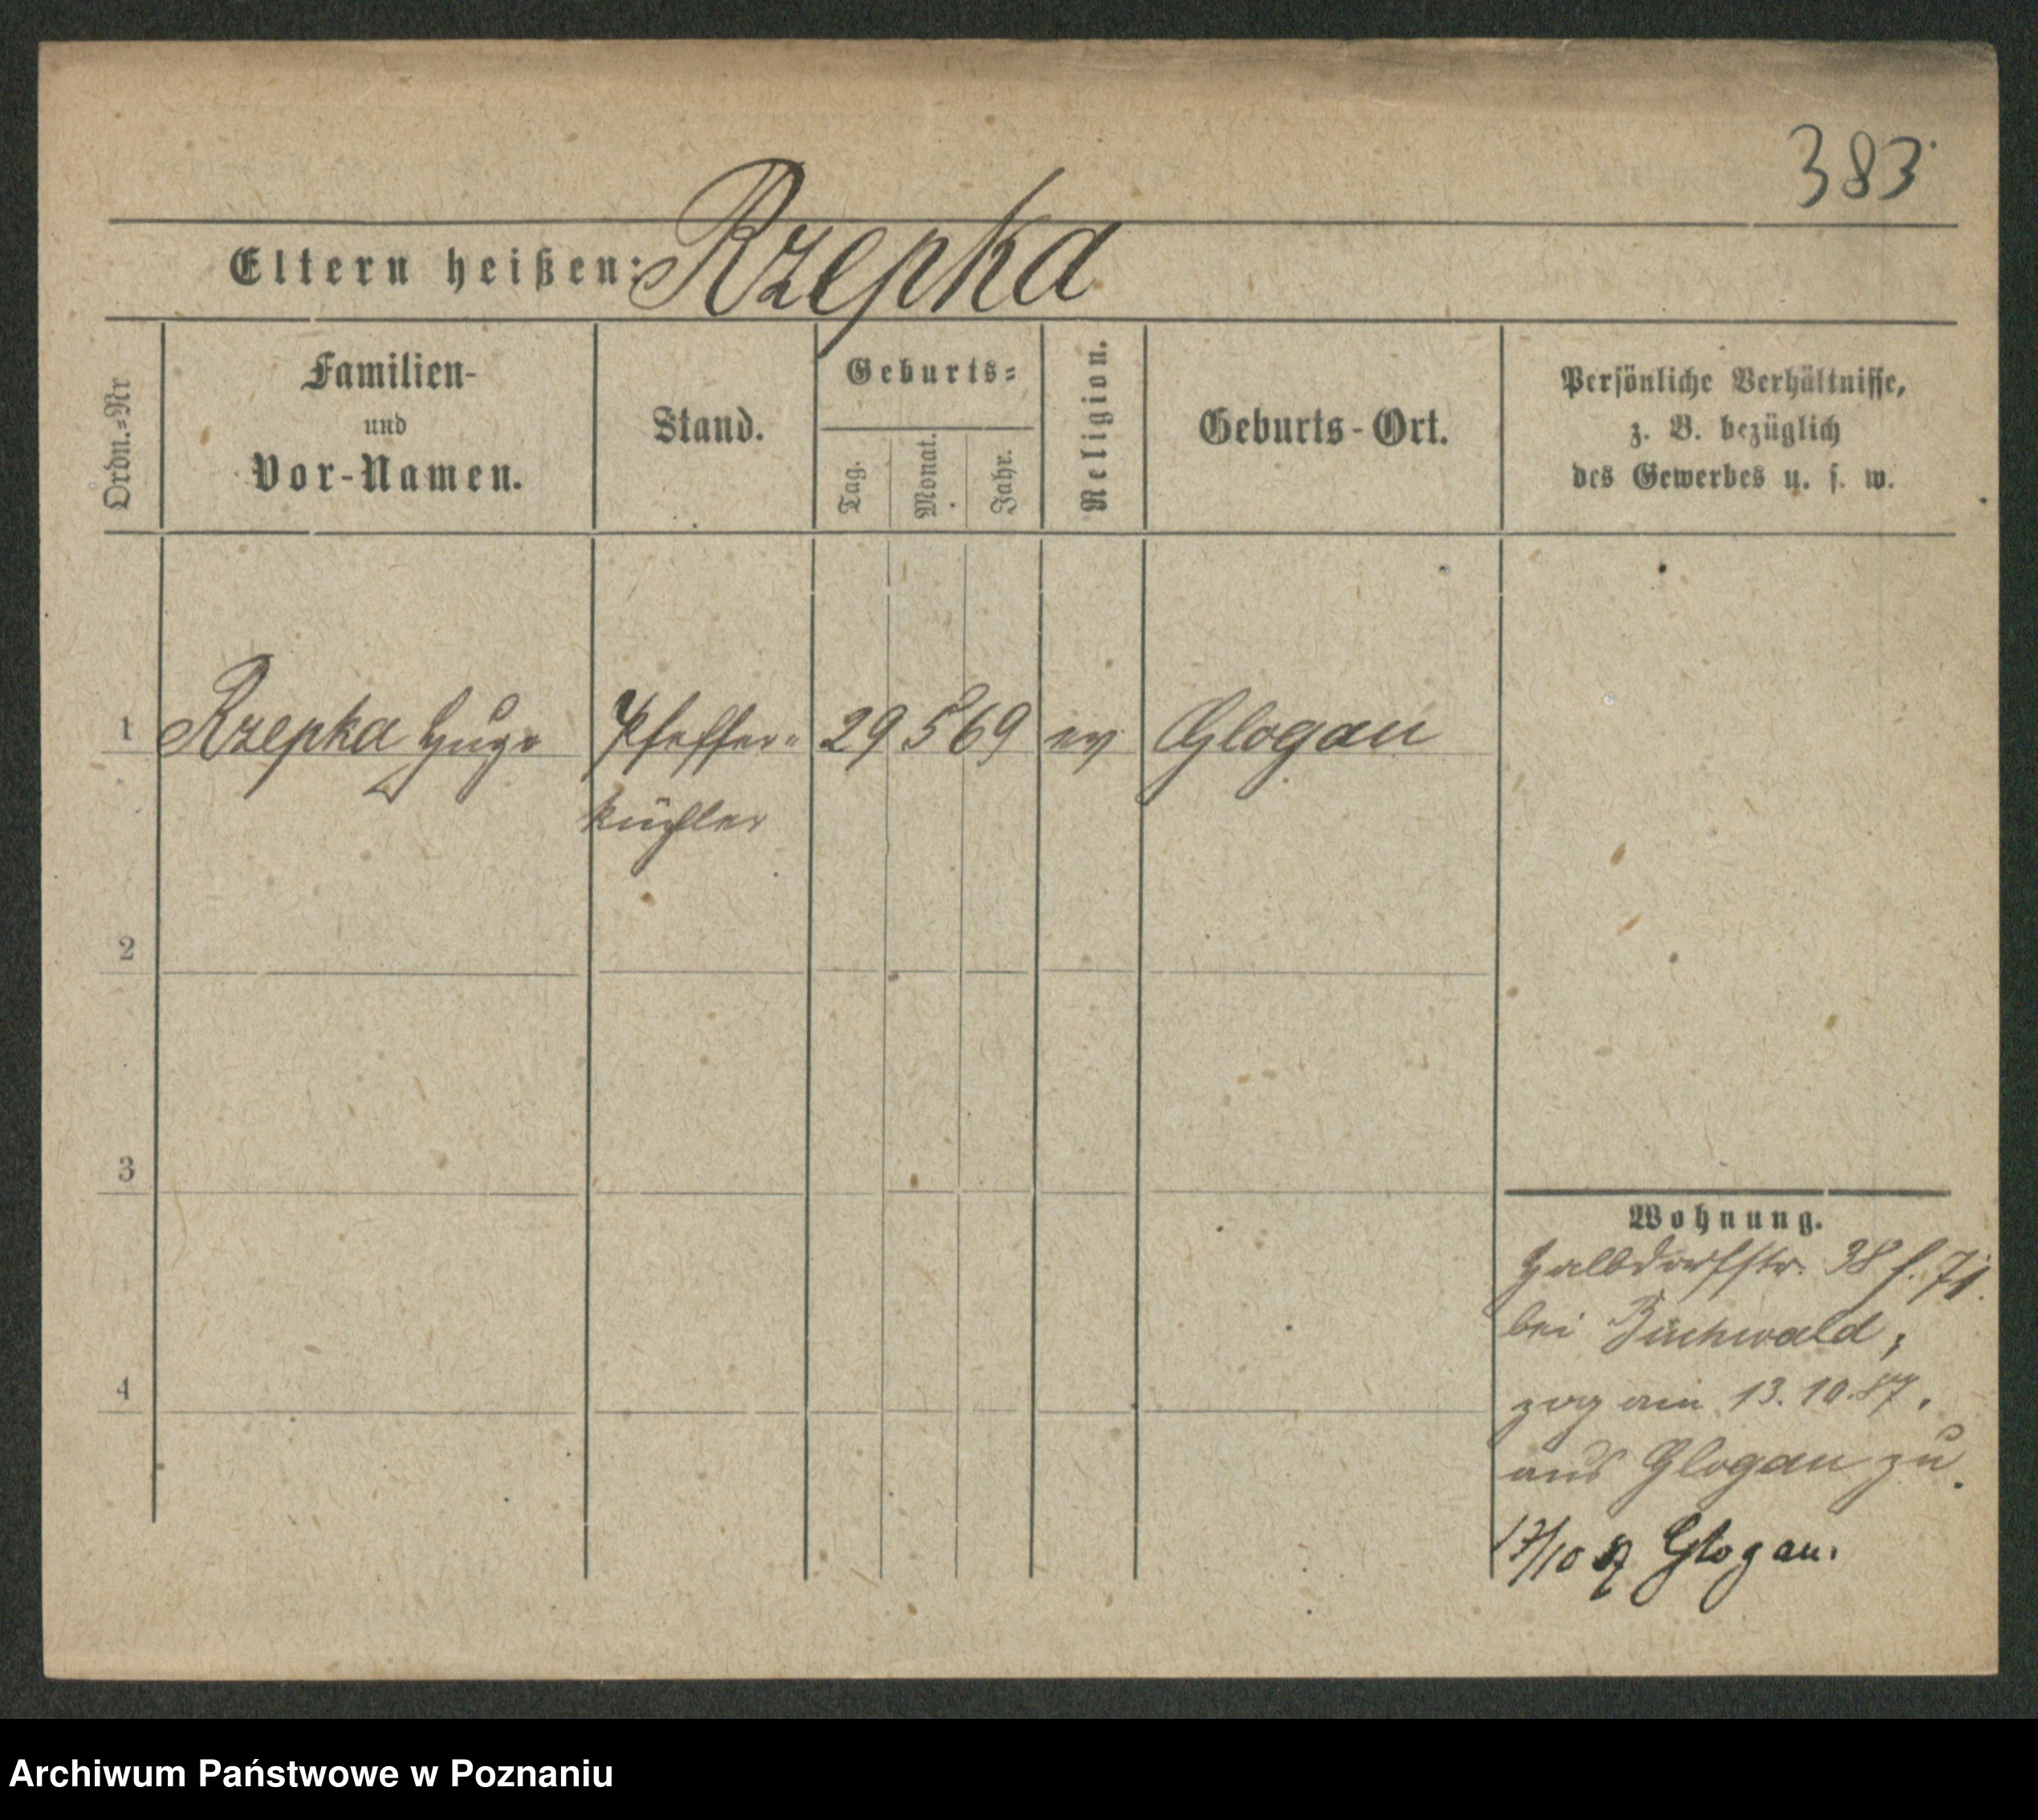 383
Eltern heißen: Rzepka
Ordn.-Nr
Familien-
und
Vor-Namen.
Stand.
Geburts-
Tag.
Monat.
Jahr.
Religion.
Geburts-Ort.
Persönliche Verhältnisse,
z. B. bezüglich
des Gewerbes u. s. w.
1 Rzepka Hugo Pfeffer- 29 5 69 ev Glogau
küchler
2
3
4
Wohnung.
Halbdorfstr. 38
bei Buchwald,
zog am 13.10.87.
aus Glogau zu.
17/10 87 Glogau.
Archiwum Państwowe w Poznaniu